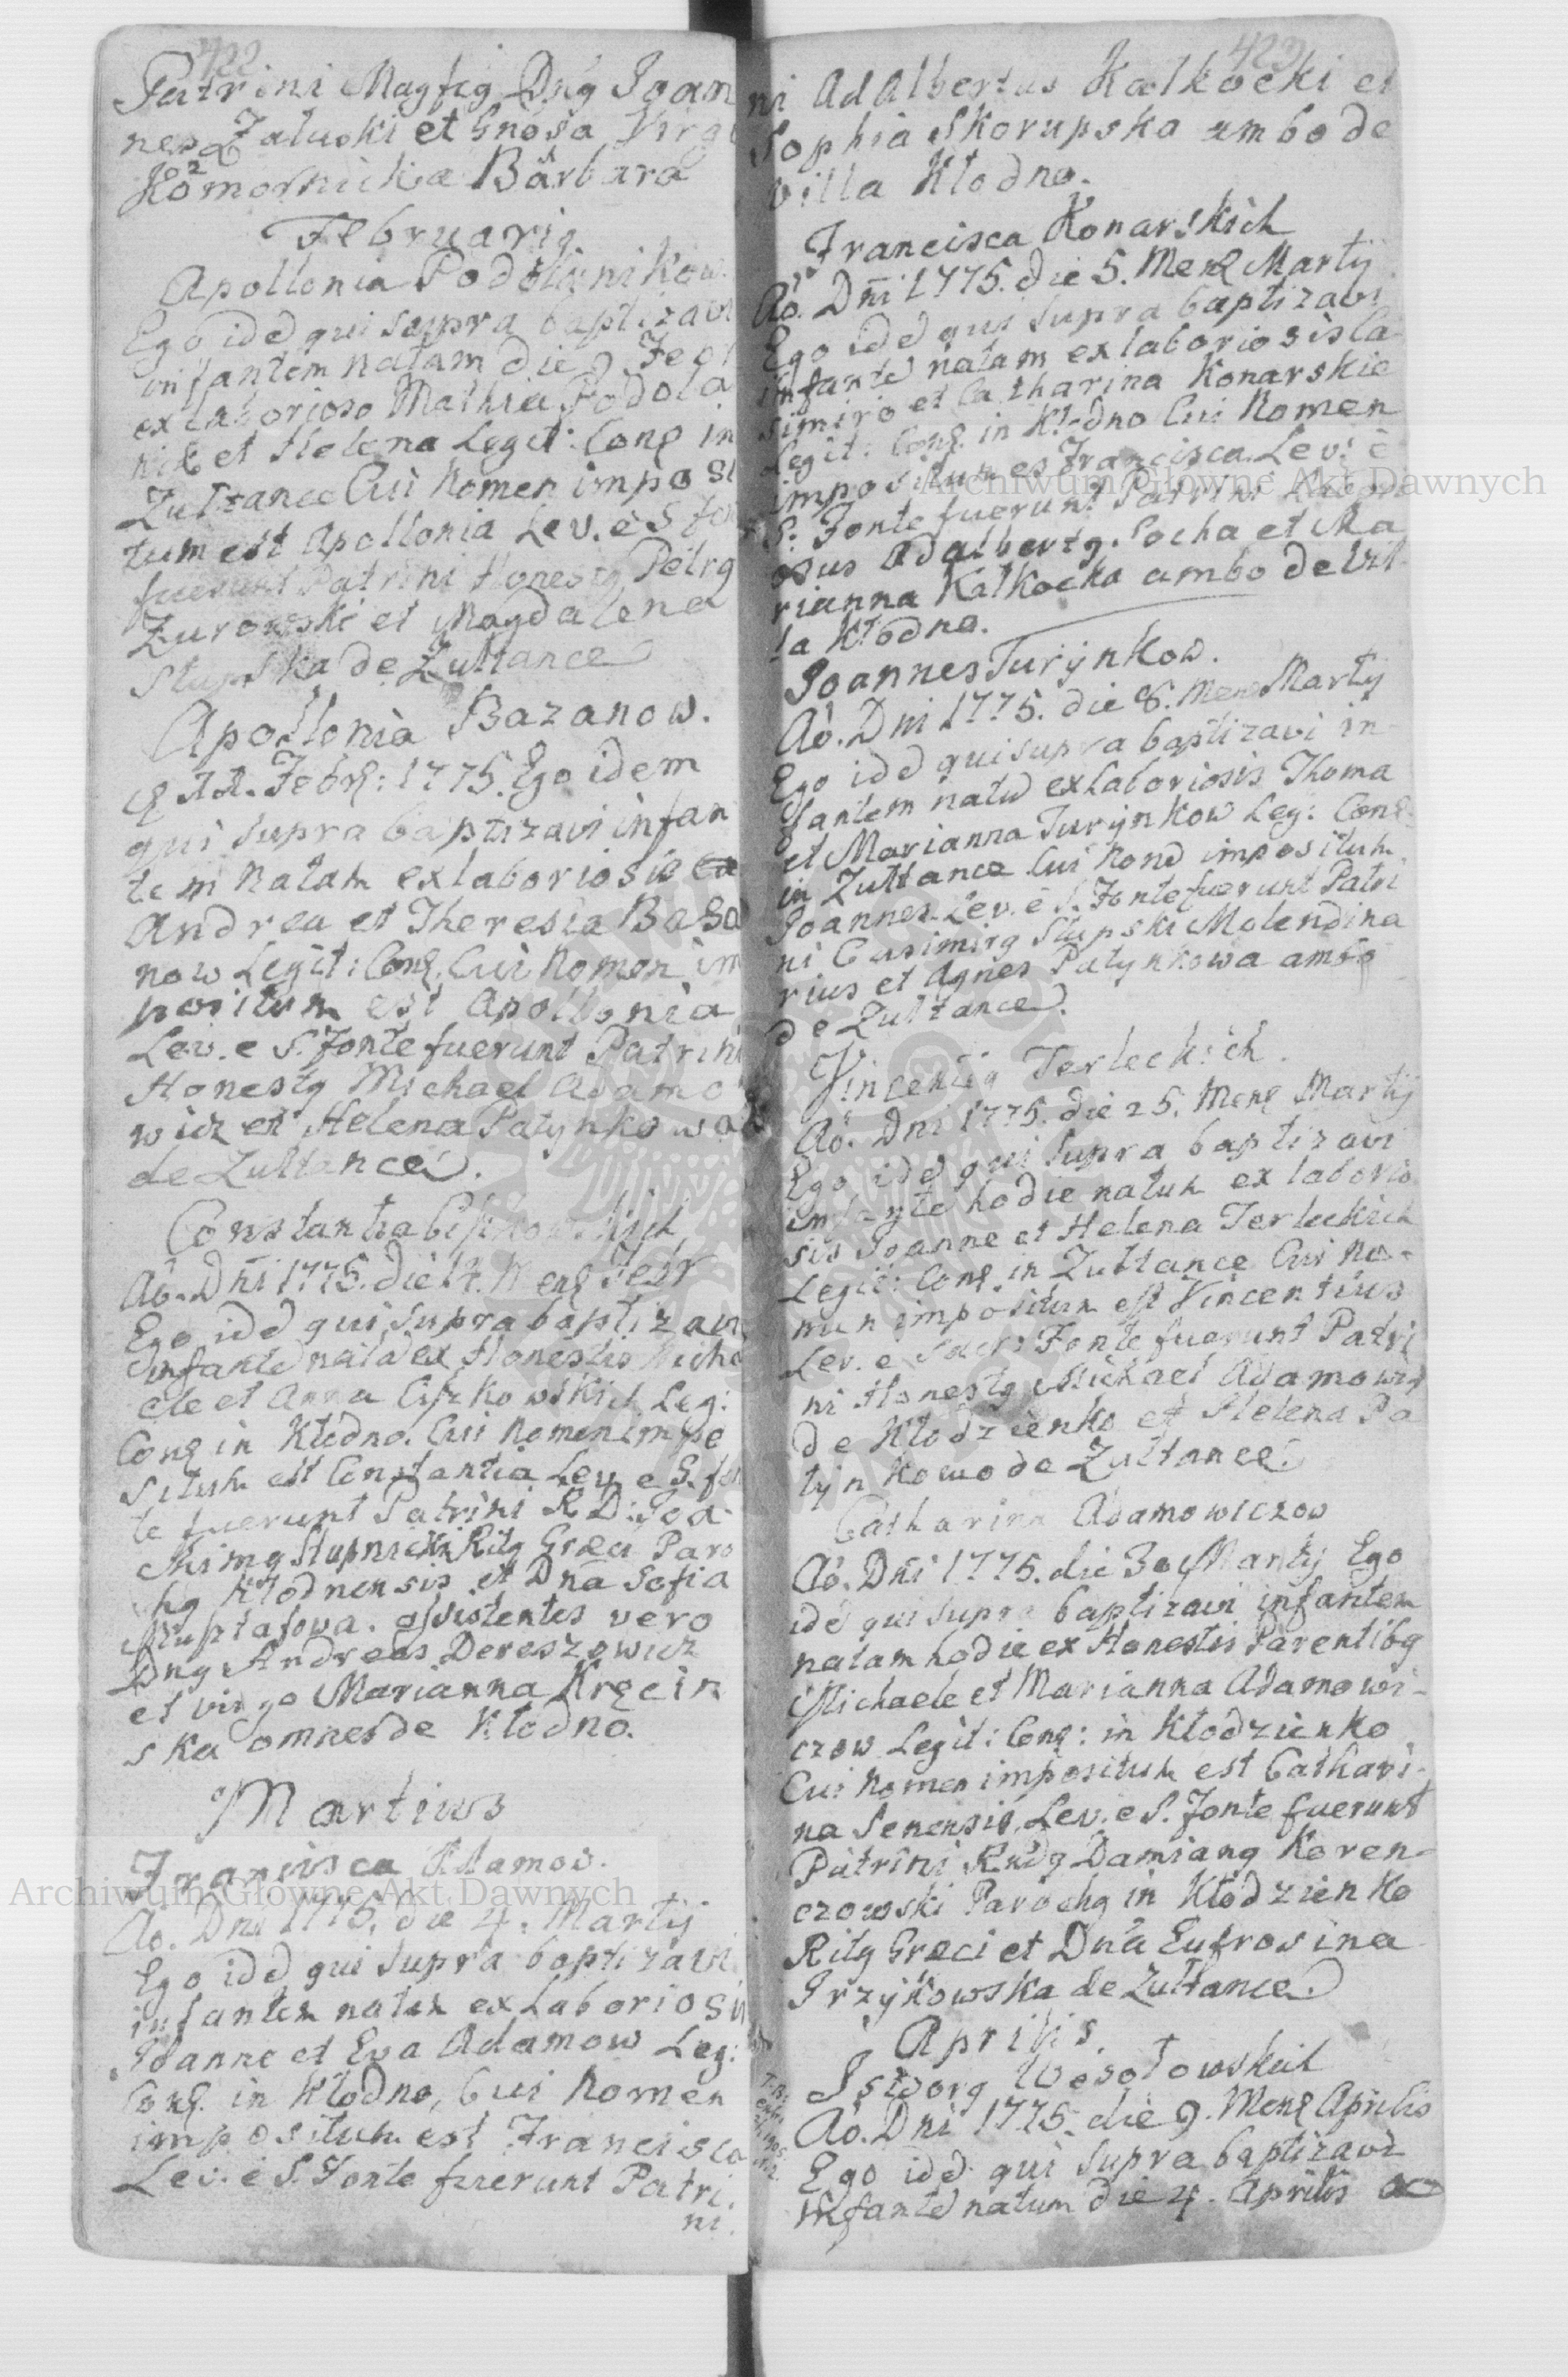 422
Patrini Magfcg Dng Joan
nes Załuski et Gnosa Virg
Komornicka Barbara
Februarig
Apollonia Podolanikow
Ego ide qui supra baptizavi
infantem natam die 9 Febr
ex laborioso Mathia Podola
nik et Helena Legit: Conq in
Zultance Cui Nomen impo si
tum est Apollonia Lev. è S fo
fuerunt Patrini Honestg Petrg
Zurowski et Magdalena
Słupska de Zultance
Apollonia Bazanow.
Febrq: 1775. Ego idem
qui supra baptizavi infan
tem Natam ex laboriosis
Andrea et Theresia Baza
now Legit: Conq. Cui Nomen im
positum est Apollonia
Lev. e S. Fonte fuerunt Patrini
Honestg Michael Adamo
wicz et Helena Patynkowa
de Zultance.
Constantia
Aô. Dni 1775. die 14. Menq Febr
Ego ide qui supra baptizavi
Infante nata ex Honestis Micha
ele et Anna Ciszkowskich Leg:
Conq in Kłodno. Cui Nomen impo
situm est Constantia Lev e S. fon
te fuerunt Patrini R D: Joa
chimg Stupnicki Ritg Græci Paro
hg Kłodnensis et Dna Sofia
assistentes vero
Dng Andreas Dereszewicz
et virgo Marianna Kręcin
ska omnes de Kłodno.
Martius
Francisca Adamow.
Aô. Dni 1775. die 4. Martij
Ego ide qui supra baptizavi
infantem natam ex Laboriosis
Joanne et Eva Adamow Leg:
Conq. in Kłodno, Cui Nomen
impositum est Francisca
Lev. è S. Fonte fuerunt Patri
ni.
423
ni Adalbertus Kalkocki et
Sophia Skorupska ambo de
villa Kłodno.
Francisca Konarskich
Aô. Dni 1775. die 5. Menq Martij
Ego ide qui supra baptizavi
infante natam ex laboriosis Ca
simiro et Catharina Konarskie
Legit: Conq. in Kłodno Cui Nomen
impositum es Francisca. Lev. è
S. Fonte fuerunt Patrini Labori
osus Adalbertg. Socha et Ma
rianna Kalkocka ambo de Vil
la Kłodno.
Joannes Turijnkow.
Aô. Dni 1775. die 8. Menq Martij
Ego ide qui supra baptizavi in
fantem natu ex Laboriosis Thoma
et Marianna Turijnkow Leg: Conq.
in Zultance Cui Nome impositum
Joannes. Lev. è S. Fonte fuerunt Patri
ni Casimirg Słupski Molendina
rius et Agnes Patynkowa ambo
de Zultance.
Vincentig Terleckich.
Aô. Dni 1775. die 25. Menq Martij
Ego ide qui supra baptizavi
infante hodie natum ex laborio
sis Joanne et Helena Terleckich
Legit: Conq. in Zultance Cui No-
men impositum est Vincentius
Lev. e Sacr: Fonte fuerunt Patri
ni Honestg Michael Adamowicz
de Kłodzienko et Helena Pa
tijnkowa de Zultance.
Catharina Adamowiczow
Aô. Dni 1775. die 30 Martij Ego
ide qui supra baptizavi infantem
natam hodie ex Honestis Parentibg
Michaele et Marianna Adamowi-
czow Legit: Conq: in Kłodzienko
Cui Nomen impositum est Cathari-
na Senensis. Lev. e S. Fonte fuerunt
Patrini Rndg Damiang Koren-
czowski Parochg in Kłodzienko
Ritg Græci et Dna Eufrosina
Przyikowska de Zultance.
Aprilis.
Isidorg Wesołowskich
Aô. Dni 1775. die 9. Menq Aprilis
Ego ide qui supra baptizavi
Infante natum die 4. Aprilis
Archiwum Główne Akt Dawnych
Archiwum Główne Akt Dawnych